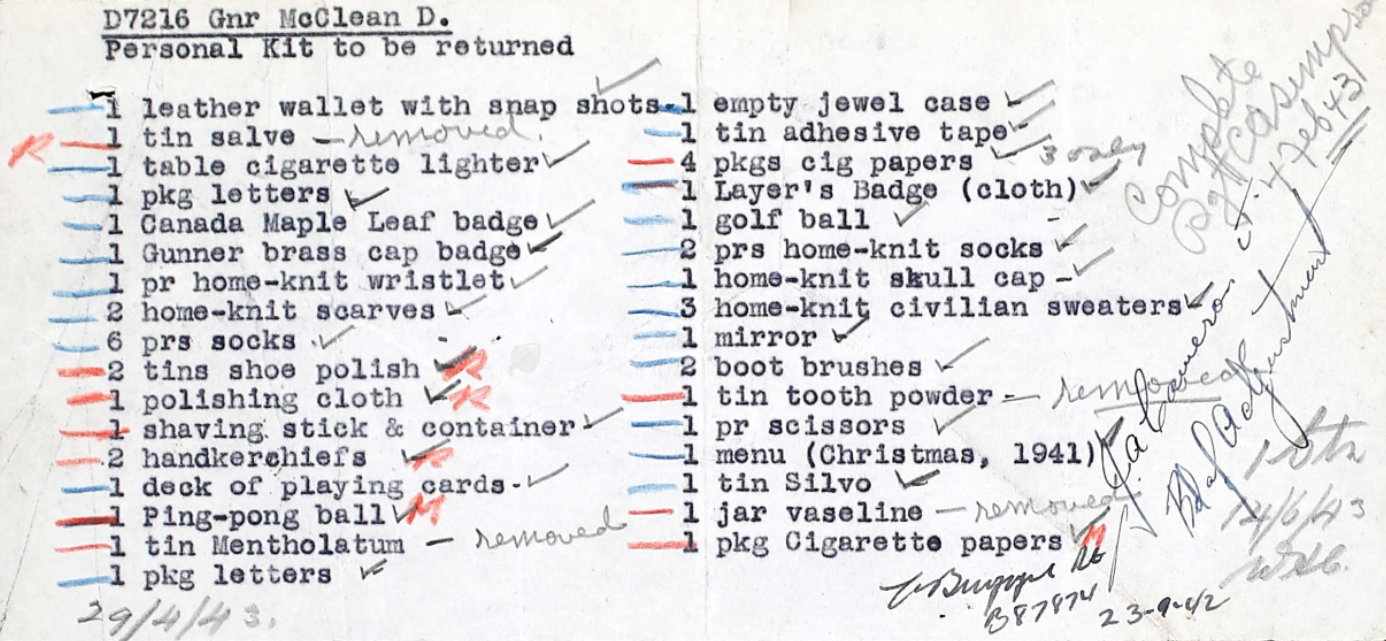 D7216 Gnr McClean D.
Personal Kit to be returned
1 leather wallet with snap shots.
R 1 tin salve — removed.
1 table cigarette lighter ✓
1 pkg letters ✓
1 Canada Maple Leaf badge ✓
1 Gunner brass cap badge ✓
1 pr home-knit wristlet ✓
2 home-knit scarves ✓
6 prs socks ✓
2 tins shoe polish ✓ R
1 polishing cloth ✓ R
1 shaving stick & container ✓
2 handkerchiefs ✓ R
1 deck of playing cards. ✓
1 Ping-pong ball ✓ M
1 tin Mentholatum — removed
1 pkg letters ✓
29/4/43.
1 empty jewel case ✓
1 tin adhesive tape ✓
4 pkgs cig papers ✓ 3 only
1 Layer's Badge (cloth) ✓
1 golf ball ✓
2 prs home-knit socks ✓
1 home-knit skull cap ✓
3 home-knit civilian sweaters ✓
1 mirror ✓
2 boot brushes ✓
1 tin tooth powder — removed
1 pr scissors ✓
1 menu (Christmas, 1941) ✓
1 tin Silvo ✓
1 jar vaseline — removed
1 pkg Cigarette papers ✓ M
B87874
23-9-42
Complete
4 Feb 43
Bd of Adjustment
14/6/43